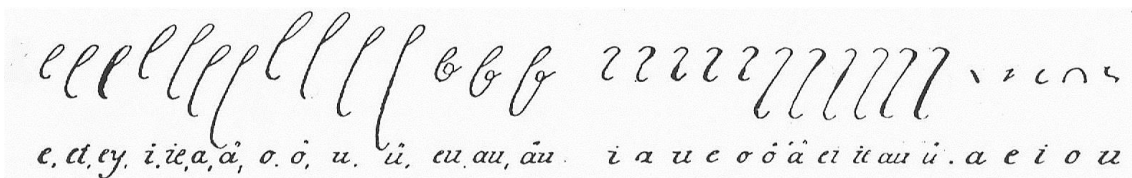 e. ei. ey. i. ie, a, ä, o. ö, u. ü. eu. au, äu. i a u e o ö ä ei ie au ü. a e i o u